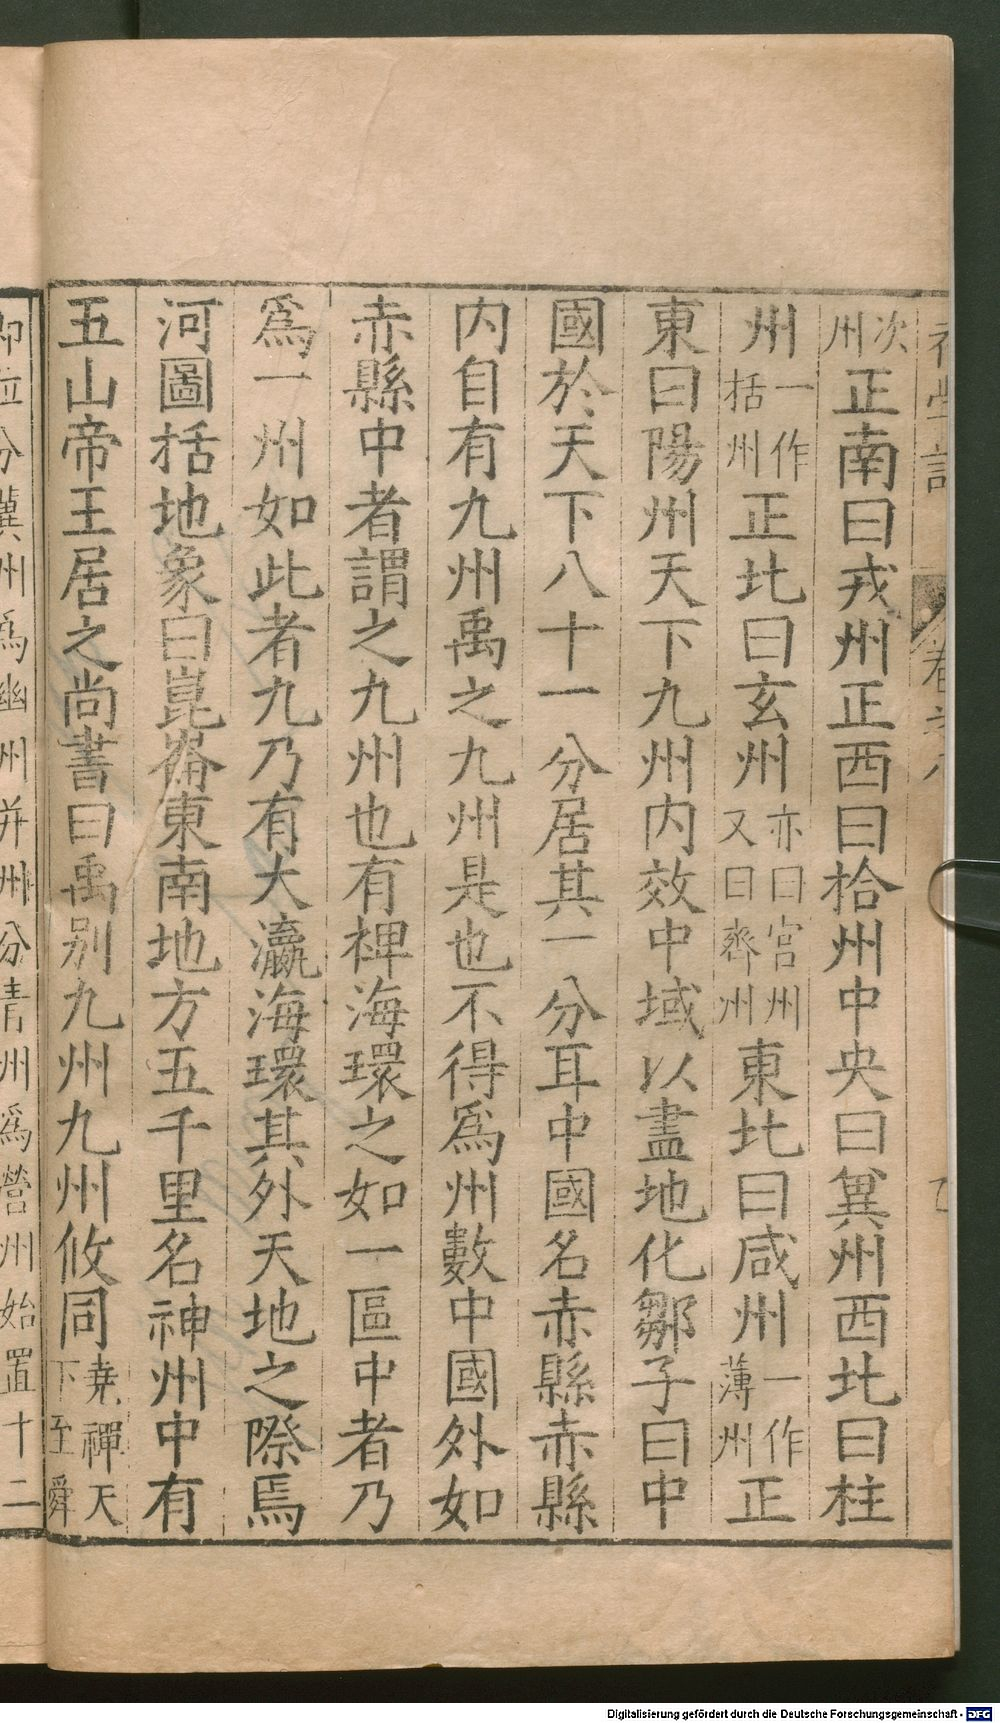 次州正南曰戎州正西曰拾州中央曰冀州西北曰柱
州一作括州正北曰玄州亦曰宮州又曰齊州東北曰咸州一作薄州正
東曰陽州天下九州内效中域以盡地化鄒子曰中
國於天下八十一分居其一分耳中國名赤縣赤縣
内自有九州禹之九州是也不得爲州數中國外如
赤縣中者謂之九州也有裨海環之如一區中者乃
爲一州如此者九乃有大瀛海環其外天地之際焉
河圖括地象曰崑崙東南地方五千里名神州中有
五山帝王居之尚書曰禹别九州九州攸同堯禪天下至舜
即位分冀州爲幽州并州分青州爲營州始置十二
Digitalisierung gefördert durch die Deutsche Forschungsgemeinschaft - DFG